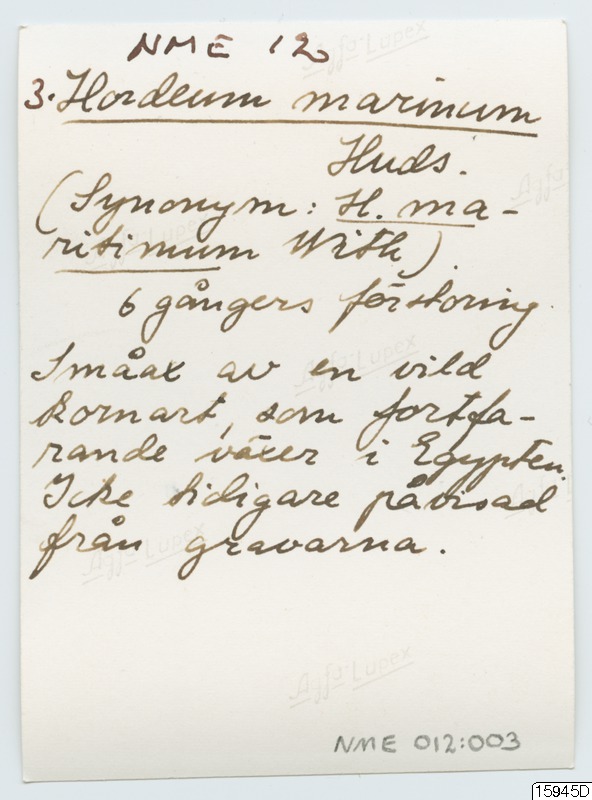 NME 12
3. Hordeum marinum
Huds.
(Synonym: H. ma-
ritimum With)
6 gångers förstoring.
Småax av en vild
kornart, som fortfa-
rande växer i Egypten.
Icke tidigare påvisad
från gravarna.
Agfa-Lupex
Agfa-Lupex
Agfa-Lupex
Agfa-Lupex
NME 012:003
15945D